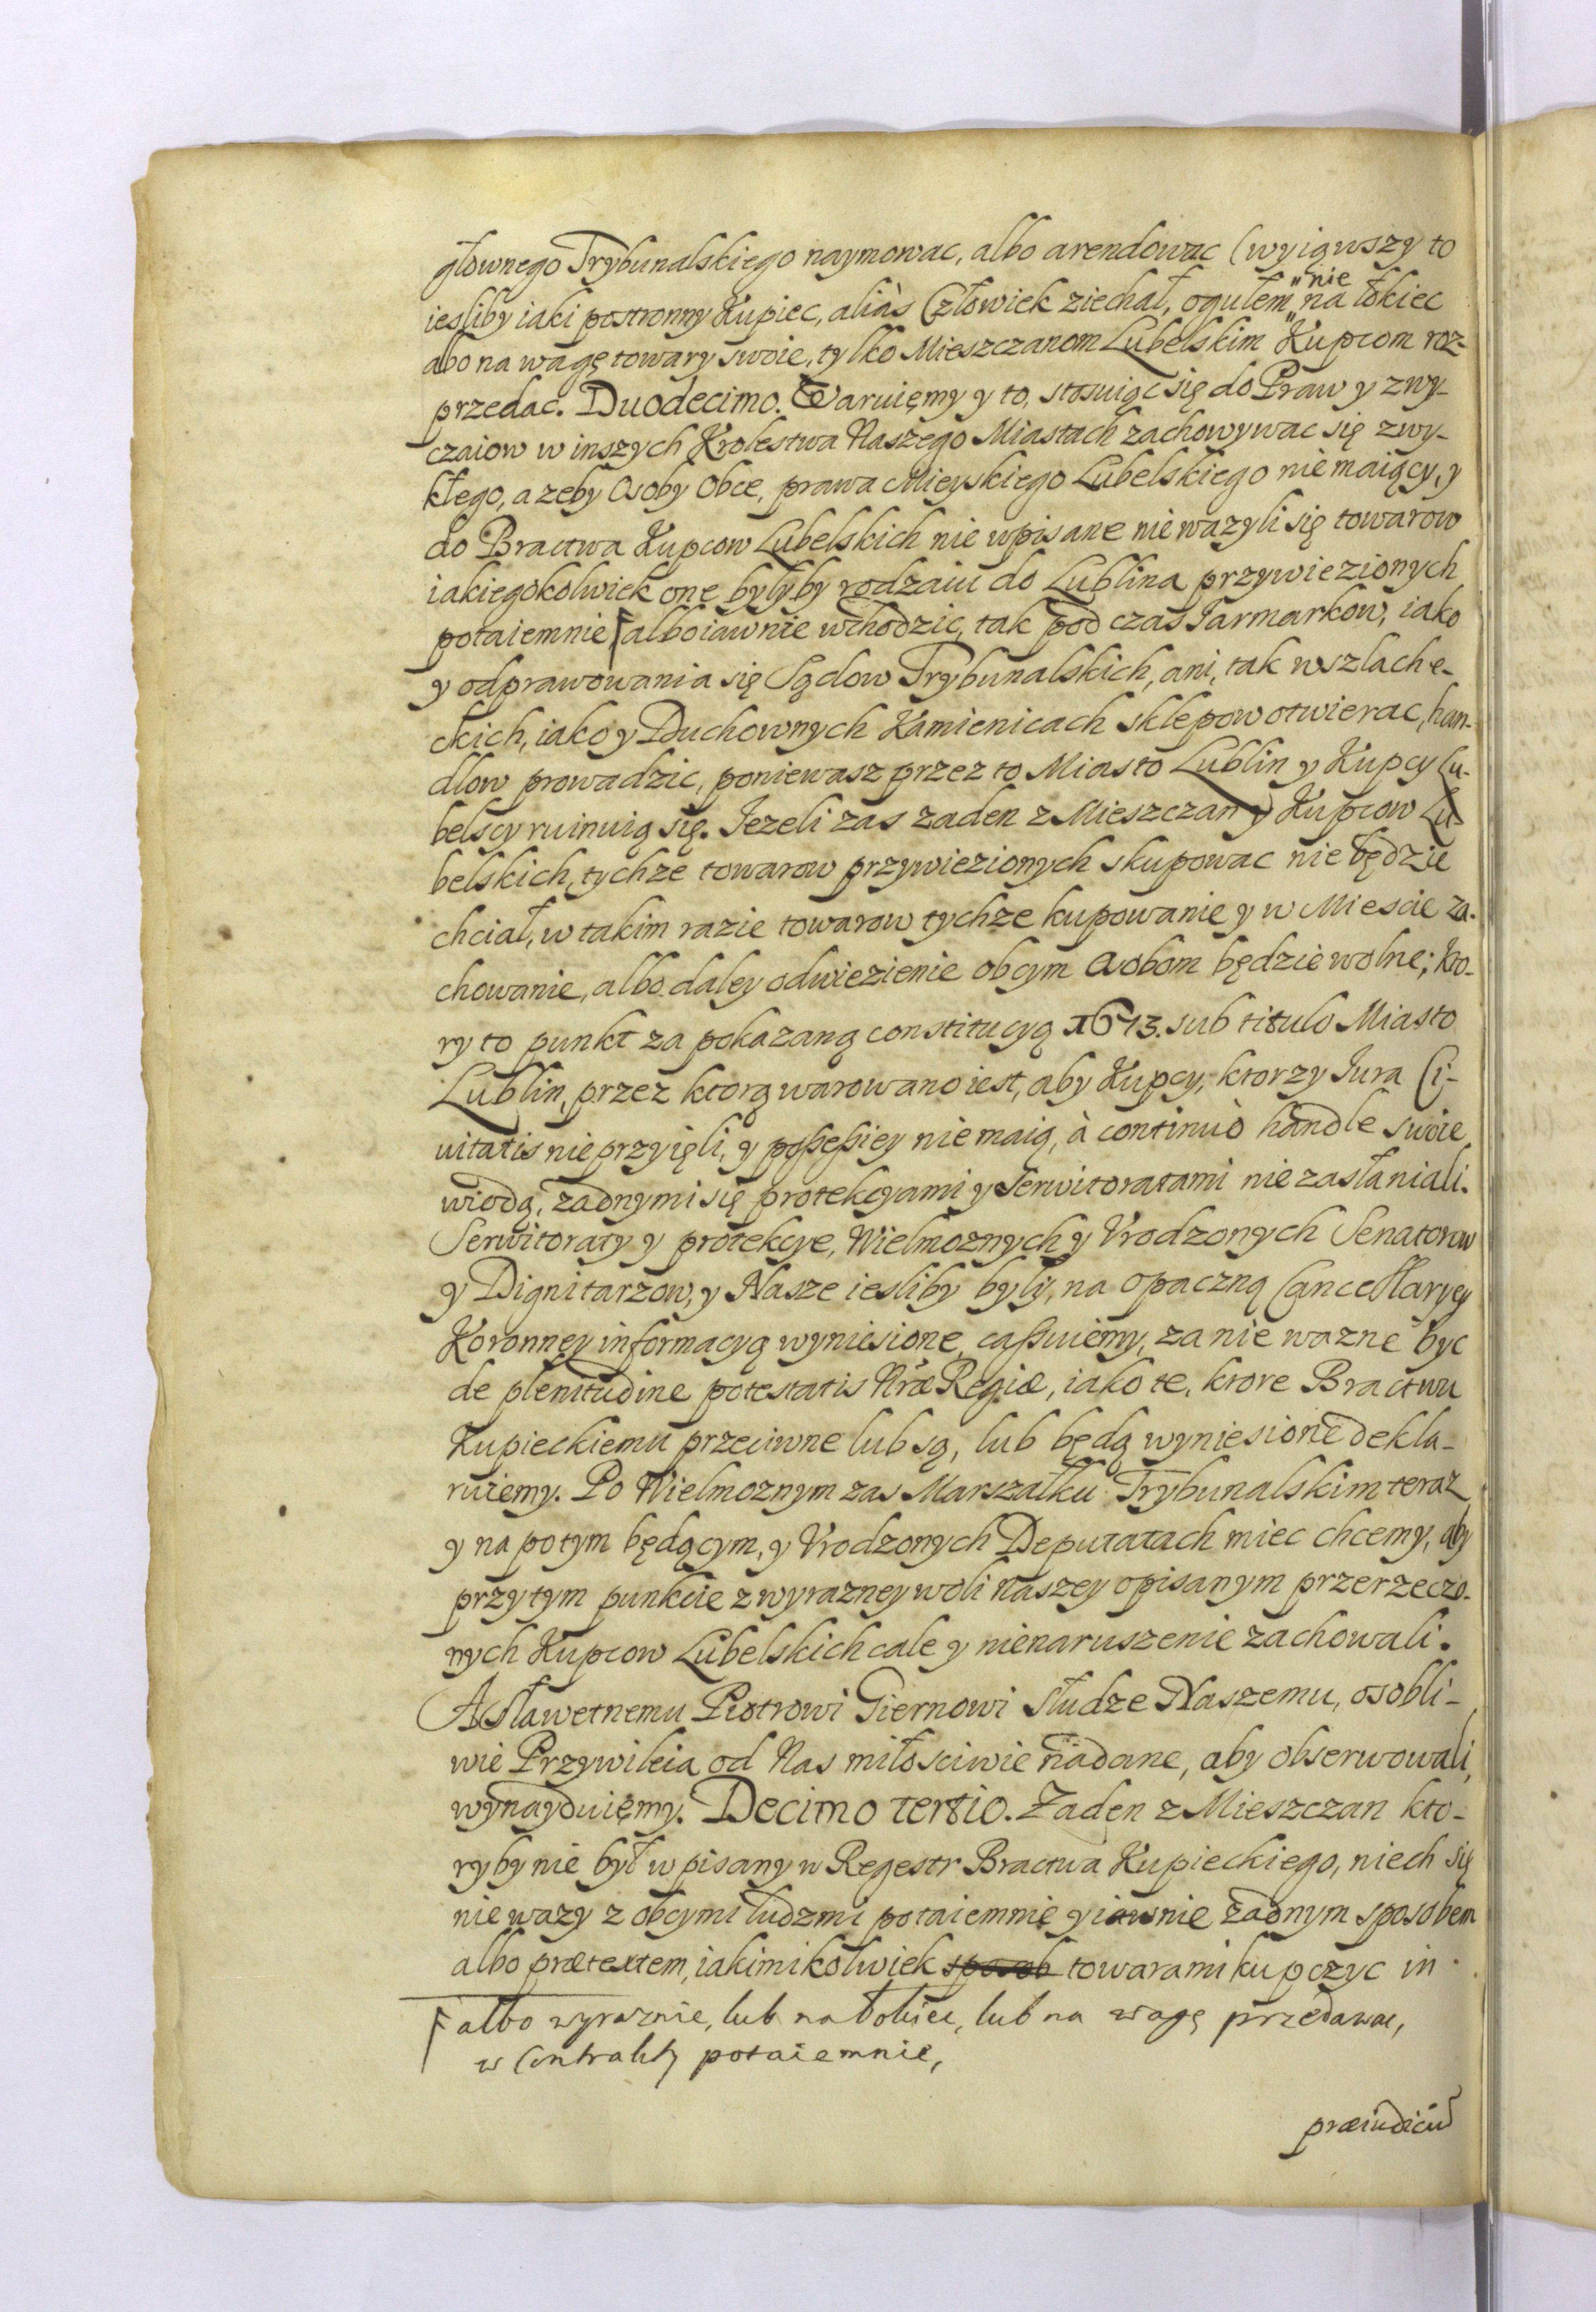 głownego Trybunalskiego naymowac, albo arendowac (wyiąwszy to
iesliby iaki postronny Kupiec, aliàs Człowiek ziechał, ogułem „nie„ na łokiec
abo na wagę towary swoie, tylko Mieszczanom Lubelskim Kupcom roz-
przedac. Duodecimo. Waruięmy y to, stosuiąc się do Praw y zwy-
czaiow w inszych Krolestwa Naszego Miastach zachowywac się zwy-
kłego, azeby Osoby Obce, prawa Mieyskiego Lubelskiego niemaiący, y
do Bractwa Kupcow Lubelskich nie wpisane nie wazyli się towarow
iakiegokolwiek one byłyby rodzaiu do Lublina przywiezionych
potaiemnie, albo iawnie wchodzic, tak pod czas Iarmarkow, iako
y odprawowania się Sądow Trybunalskich, ani, tak w szlache-
ckich, iako y Duchownych Kamienicach sklepow otwierac, han-
dlow prowadzic, poniewasz przez to Miasto Lublin y Kupcy Lu-
belscy ruinuią się. Iezeli zas zaden z Mieszczan y Kupcow Lu-
belskich, tychze towarow przywiezionych skupowac nie będzie
chciał, w takim razie towarow tychze kupowanie y w Miescie za-
chowanie, albo daley odwiezienie obcym osobom będzie wolne; kto-
ry to punkt za pokazaną constitucyą 1673. sub titulo Miasto
Lublin, przez ktorą warowano iest, aby Kupcy, ktorzy Iura Ci-
uitatis nie przyięli, y possessiey nie maią, à continuò handle swoie
wiodą, zadnymi się protekcyami y Serwitoratami nie zasłaniali.
Serwitoraty y protekcye, Wielmoznych y Vrodzonych Senatorow
y Dignitarzow, y Nasze iesliby były, na opaczną Cancellaryey
Koronney informacyą wyniesione, cassuiemy, za nie wazne byc
de plenitudine potestatis Nræ Regiæ, iako te, ktore Bractwu
Kupieckiemu przeciwne lub są, lub będą wyniesione dekla-
ruiemy. Po Wielmoznym zas Marszałku Trybunalskim teraz
y na potym będącym, y Vrodzonych Deputatach miec chcemy, aby
przy tym punkcie z wyrazney woli naszey opisanym przerzeczo-
nych Kupcow Lubelskich cale y nienaruszenie zachowali.
A Sławetnemu Piotrowi Giernowi Słudze Naszemu, osobli-
wie Przywileia od Nas miłosciwie nadane, aby obserwowali,
wynayduięmy. Decimo tertio. Zaden z Mieszczan kto-
ryby nie był wpisany w Regestr Bractwa Kupieckiego, niech się
nie wazy z obcymi ludzmi potaiemnie y iawnie zadnym sposobem
albo prætextem, iakimikolwiek sposob towarami kupczyc in
albo wyraznie, lub na łokiec, lub na wagę przedawac,
w Contrakty potaiemnie,
præiudiciū